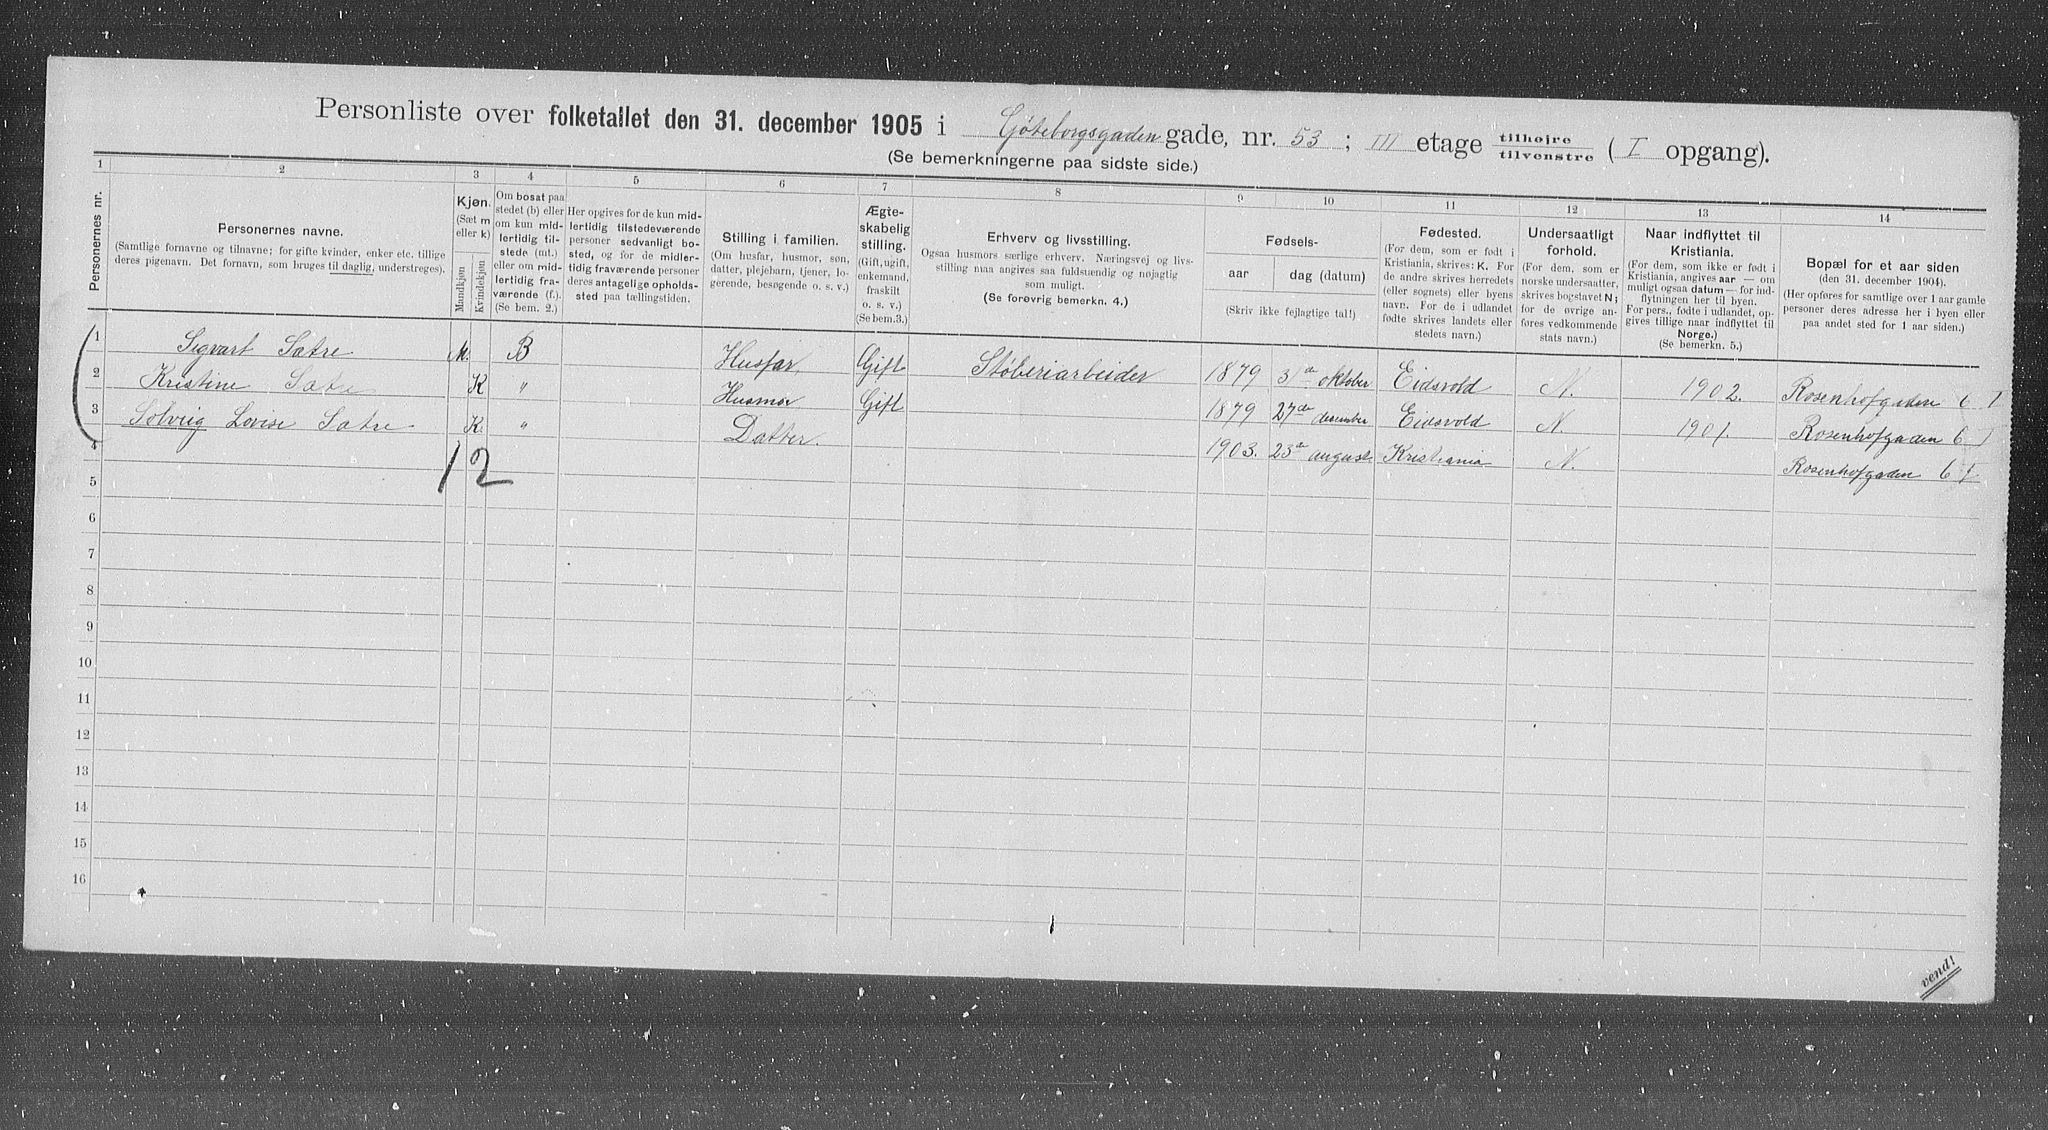 Personliste over folketallet den 31. december 1905 i Göteborgsgaden gade, nr. 53 ; III etage tilhøjre / tilvenstre ( I opgang).
(Se bemerkningerne paa sidste side.)
1 2 3 4 5 6 7 8 9 10 11 12 13 14
Personernes nr.
Personernes navne.
(Samtlige fornavne og tilnavne; for gifte kvinder, enker etc. tillige
deres pigenavn. Det fornavn, som bruges til daglig, understreges).
Kjøn.
(Sæt m
eller k)
Mandkjøn
Kvindekjøn
Om bosat paa
stedet (b) eller
om kun mid-
lertidig til-
stede (mt.)
eller om mid-
lertidig fra-
værende (f.).
(Se bem. 2.)
Her opgives for de kun mid-
lertidig tilstedeværende
personer sedvanligt bo-
sted, og for de midler-
tidig fraværende personer
deres antagelige opholds-
sted paa tællingstiden.
Stilling i familien.
(Om husfar, husmor, søn,
datter, plejebarn, tjener, lo-
gerende, besøgende o. s. v.)
Ægte-
skabelig
stilling.
(Gift, ugift,
enkemand,
fraskilt
o. s. v.)
(Se bem. 3.)
Erhverv og livsstilling.
Ogsaa husmors særlige erhverv. Næringsvej og livs-
stilling maa angives saa fuldstændig og nøjagtig
som muligt.
(Se forøvrig bemerkn. 4.)
Fødsels-
aar dag (datum)
(Skriv ikke fejlagtige tal!)
Fødested.
(For dem, som er født i
Kristiania, skrives: K. For
de andre skrives herredets
(eller sognets) eller byens
navn. For de i udlandet
fødte skrives landets eller
stedets navn.)
Undersaatligt
forhold.
(For dem, som er
norske undersaatter,
skrives bogstavet N;
for de øvrige an-
føres vedkommende
stats navn.)
Naar indflyttet til
Kristiania.
(For dem, som ikke er født i
Kristiania, angives aar — om
muligt ogsaa datum — for ind-
flytningen her til byen.
For pers., fødte i udlandet, op-
gives tillige naar indflyttet til
Norge.)
(Se bemerkn. 5.)
Bopæl for et aar siden
(den 31. december 1904).
(Her opføres for samtlige over 1 aar gamle
personer deres adresse her i byen eller
paa andet sted for 1 aar siden.)
1 Sigvart Sætre M. B Husfar Gift Støberiarbeider 1879 31te oktober Eidsvold N. 1902. Rosenhofgaden 6 I
2 Kristine Sætre K " Husmor Gift 1879 27de desember Eidsvold N. 1901. Rosenhofgaden 6 I
3 Solveig Lovise Sætre K. " Datter. 1903. 23de august Kristiania N. Rosenhofgaden 6 I
4 1 2
5
6
7
8
9
10
11
12
13
14
15
16
vend!